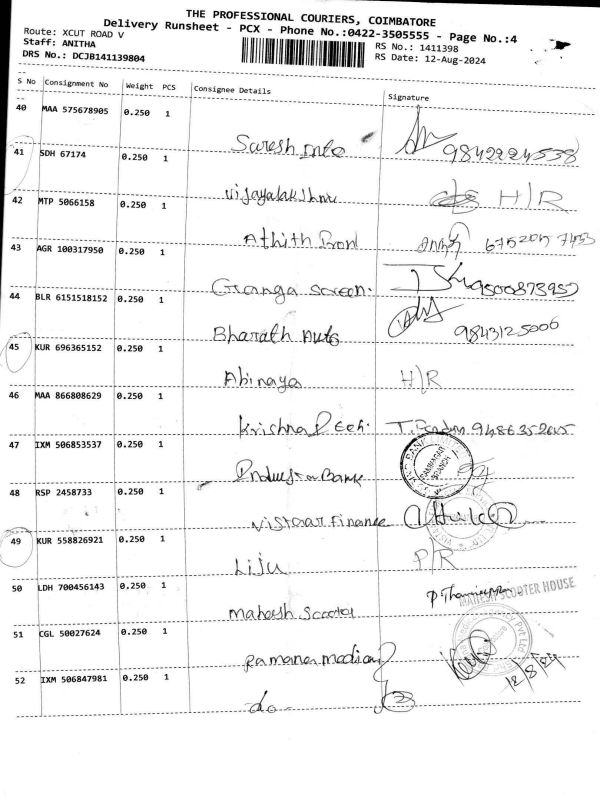 THE PROFESSIONAL COURIERS, COIMBATORE
Delivery Runsheet - PCX - Phone No.:0422-3505555 - Page No.:4
Route: XCUT ROAD V
Staff: ANITHA
DRS No.: DCJB141139804
RS No.: 1411398
RS Date: 12-Aug-2024
S No Consignment No Weight PCS Consignee Details Signature
40 MAA 575678905 0.250 1
Suresh Info 9842224538
41 SDH 67174 0.250 1
Vijayalakshmi H/R
42 MTP 5066158 0.250 1
Athith
43 AGR 100317950 0.250 1
Ganga Screen. 9500873957
44 BLR 6151518152 0.250 1
Bharath Auto 9843125006
45 KUR 696365152 0.250 1
Abinaya H/R
46 MAA 866808629 0.250 1
Krishna Tech. 9486352605
47 IXM 506853537 0.250 1
Industan Bank
48 RSP 2458733 0.250 1
Vistaar Finance
49 KUR 558826921 0.250 1
Liju P/R
50 LDH 700456143 0.250 1
Mahesh Scooter MAHESH SCOOTER HOUSE
51 CGL 50027624 0.250 1
Ramana medical 12/8/24
52 IXM 506847981 0.250 1
do